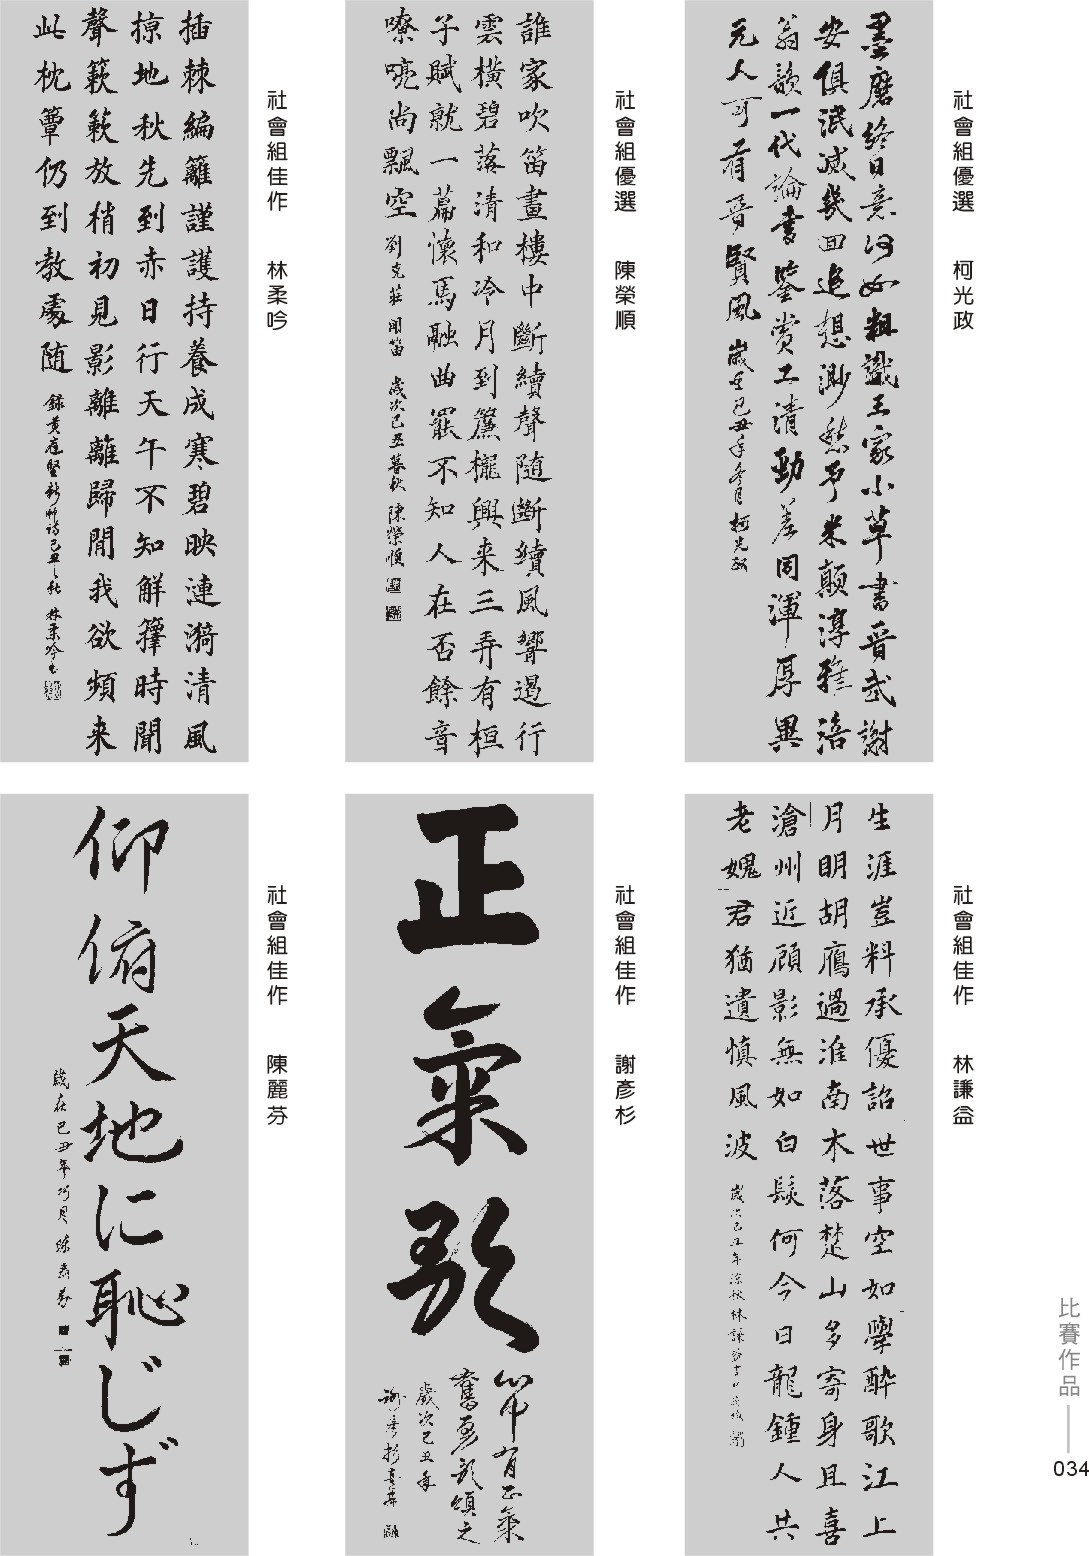 墨磨終日意何如粗識王家小草書晉武謝
安俱泯滅幾回追想渺愁予米顛淳雅涪
翁韻一代論書鑒賞工清勁差同渾厚異
元人可有晉賢風
社會組優選　柯光政
誰家吹笛畫樓中斷續聲隨斷續風響遏行
雲橫碧落清和冷月到簾櫳興来三弄有桓
子賦就一篇懷馬融曲罷不知人在否餘音
嘹喨尚飄空 劉克莊 聞笛 歲次己丑暮秋 陳榮順
社會組優選　陳榮順
插棘編籬謹護持養成寒碧映漣漪清風
掠地秋先到赤日行天午不知解籜時聞
聲簌簌放梢初見影離離歸閒我欲頻来
此枕簟仍到教處随
社會組佳作　林柔吟
生涯豈料承優詔世事空如學醉歌江上
月明胡鴈過淮南木落楚山多寄身且喜
滄州近顧影無如白髮何今日龍鍾人共
老媿君猶遺慎風波
社會組佳作　林謙益
正氣歌
歲次己丑年
社會組佳作　謝彥杉
仰俯天地に恥じず
社會組佳作　陳麗芬
比賽作品
034